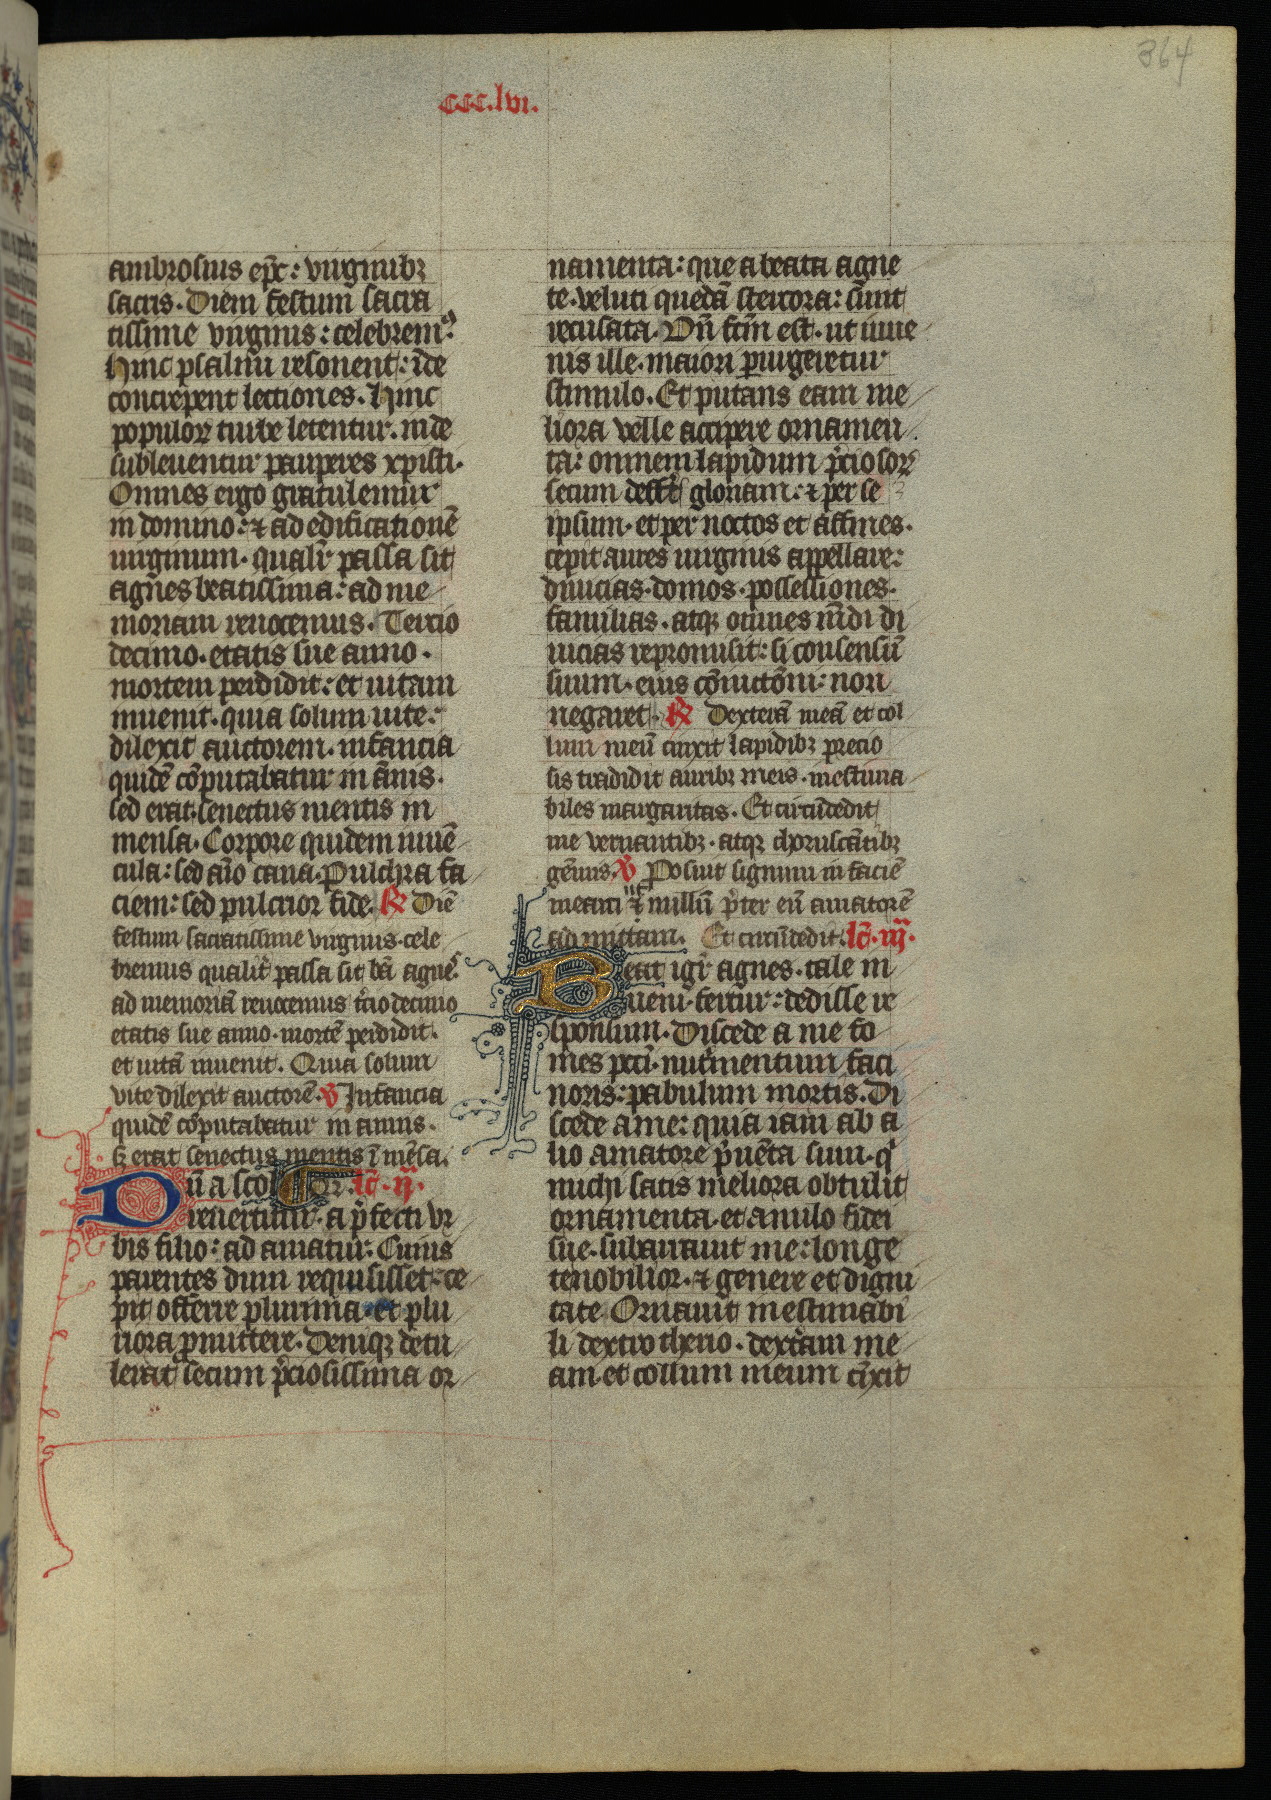 364
ccc.lvi.
ambrosius ep̄c: virginibꝫ
sacris. Diem festum sacra
tissime virginis: celebrem᷒.
Hinc psalmi resonent: īde
concrepent lectiones. Hinc
populoꝝ turbe letentur. inde
subleuentur pauperes xp̄isti.
Omnes ergo gratulemur
in domino: ⁊ ad edificationē
uirginum. qualir̄ passa sit
agnes beatissima: ad me
moriam reuocemus. Tercio
decimo. etatis sue anno.
mortem perdidit: et uitam
inuenit. quia solum uite:
dilexit auctorem. infancia
quidē cōputabatur in ānis.
sed erat. senectus mentis in
mensa. Corpore quidem iuuē
cula: sed aīo cana. Pulchra fa
ciem: sed pulcrior fide. ℟ Diē
festum sacratissime virginis. cele
bremus qualit̄ passa sit bā agnes.
ad memoriā reuocemus t̄cio decimo
etatis sue anno. mortē perdidit.
et uitā inuenit. Quia solum
vite dilexit auctorē. ℣ Infancia
quidē cōputabatur in annis.
sꝫ erat senectus mentis ī mēsa.
Dū a scol Tꝛ. lc̄. ij.
reuertitur. a p̄fecti vr
bis filio: ad amatur. Cuius
parentes dum requisisset: ce
pit offerre plurima. et plu
riora ꝓmittere. Deniqꝫ detu
lerat secum p̄ciosissima or
namenta: que a beata agne
te. veluti quedā stercora: sunt
recusata. Vn̄ fc̄m est. ut iuue
nis ille. maiori ꝑurgeretur
stimulo. Et putans eam me
liora velle accipere ornamen
ta: omnem lapidum p̄ciosoꝝ
secum deff̄t gloriam: ⁊ per se
ipsum. et per noctos et affines.
cepit aures uirginis appellare:
diuicias. domos. possessiones.
familias. atqꝫ omnes mūdi di
uicias repromisit: si consensū
suum. eius cōiuctōni: non
negaret. ℟ Dexterā meā et col
lum meū cinxit lapidibꝫ precio
sis tradidit auribꝫ meis. inestima
biles margaritas. Et circūdedit
me vernantibꝫ. atqꝫ choruscātibꝫ
gēmis. ℣ Posuit signum in faciē
meam ut nullū p̄ter eū amatorē
ad mittam. Et circūdedit. lc̄. iij.
Beat igr̄ agnes. tale in
ueni. fertur: dedisse re
sponsum. Discede a me fo
mes pcc̄i. nut̄mentum faci
noris: pabulum mortis. Di
scede a me: quia iam ab a
lio amatore p̄uēta sum. q̄
michi satis meliora obtulit
ornamenta. et anulo fidei
sue. subarrauit me: longe
te nobilior. ⁊ genere et digni
tate. Ornauit inestimabi
li dextro cherio. dext̄am me
am. et collum meum cīxit